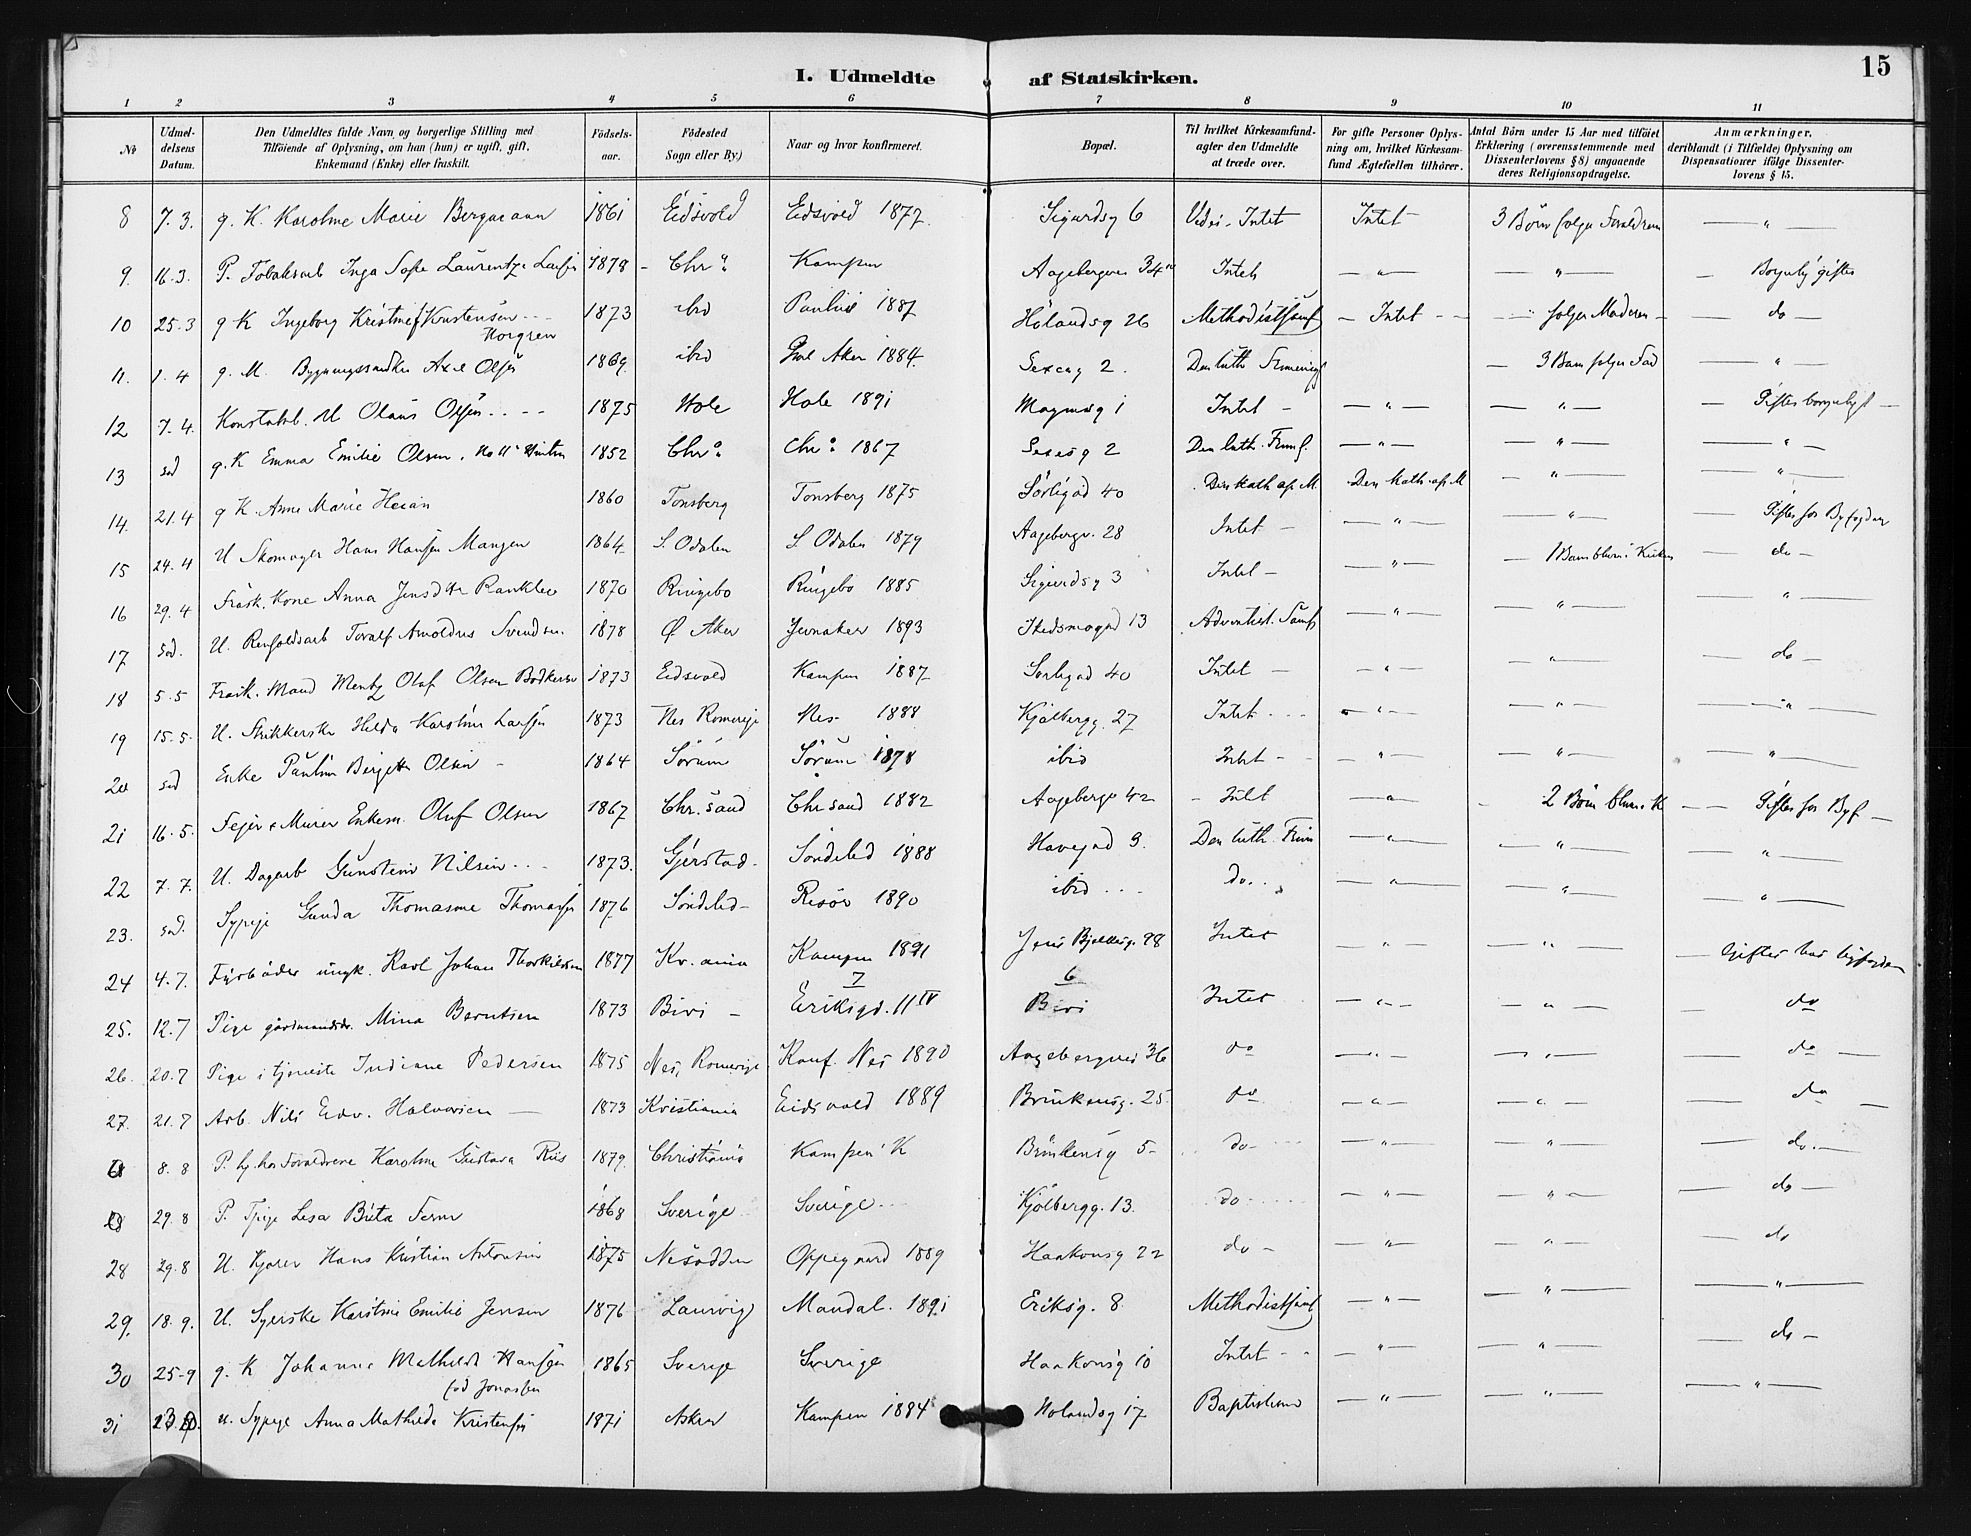 15
I. Udmeldte af Statskirken.
1 2 3 4 5 6 7 8 9 10 11
No
Udmel-
delsens
Datum.
Den Udmeldtes fulde Navn og borgerlige Stilling med
Tilföiende af Oplysning, om han (hun) er ugift, gift,
Enkemand (Enke) eller fraskilt.
Födsels-
aar.
Födested
Sogn eller By.)
Naar og hvor konfirmeret.
Bopæl.
Til hvilket Kirkesamfund-
agter den Udmeldte
at træde over.
For gifte Personer Oplys-
ning om, hvilket Kirkesam-
fund Ægtefællen tilhörer.
Antal Börn under 15 Aar med tilföiet
Erklæring (overensstemmende med
Dissenterlovens § 8) angaaende
deres Religionsopdragelse.
Anmærkninger,
deriblandt (i Tilfælde) Oplysning om
Dispensationer ifölge Dissenter-
lovens § 15.
8 7.3. g. K. Karoline Marie Bergmann 1861 Eidsvold Eidsvold 1877 Sigurdsg 6 Intet Intet 3 Börn følger Foreldrene — " —
9. 16.3. P. Tobaksarb Inga Sofie Laurentze Larsen 1878 Chr.a Kampen Aagebergvn 34 Intet — " — — " — Borgerlig giftes
10 25.3 g K Ingeborg Kristine f Kristensen 1873 ibid Paulus 1887 Hölandsg 26 Methodistsamf — Intet — følger Moderen — do —
Norgren
11. 1.4 g. M. Bygningssnedker Axel Olsen 1869 ibid Aker 1884 Sexesg 2. Den luth Frimenigh 3 Barn følger Fad — " —
12 7.4. Konstabel. U Olaus Olsen 1875 Hole Hole 1891 Magnusg 1 Intet — — " — — " — Giftes borgerligt —
13 sd g. K Emma Emilie Olsen 1852 Chr.a Chr.a 1867 Sexesg 2 Den luth. Frim. — " — — " — — " —
14. 21.4 g K. Anne Marie Heian 1860 Tonsberg Tonsberg 1875 Sörligad 40 Den kath ap. M. Den kath. ap. M — " — — " —
15 24.4 U Skomager Hans Hansen Mangen 1864 S. Odalen S Odalen 1879 Aagebergv. 28 Intet — — " — — " — Giftes hos Byfogden
16 29.4 Frask. Kone Anna Jensdtr Ranklev 1870 Ringebo Ringebo 1885 Sigurdsg 3 Intet — — " — 1 Barn bliver i Kirken — do —
17 sd. U. Renholdsarb Toralf Arnoldus Svendsen 1878 Ø Aker Jevnaker 1893 Skedsmogd 13 Adventist. Samf — " — — " — — " —
18 5.5 Frask. Mand Mentz Olaf Olsen Bodkerud 1873 Eidsvold Kampen 1887 Sorligad 40 Intet — — " — — " — do —
19 15.5. U. Strikkerske Hilda Karoline Larsen 1873 Nes Romerige Nes 1888 Kjølbergg. 27 Intet — " — — " — — " —
20 sd Enke Pauline Birgitte Olsen 1864 Sörum Sörum 1878 ibid Intet — — " — — " — — " —
21 16.5. Fejer & Murer Enkem. Oluf Olsen 1867 Chr.sand Chr sand 1882 Aagebergv 42 Intet — " — 2 Börn bliver i K — Giftes hos Byf. —
22 7.7. U. Dagarb Gunstein Nilsen 1873. Gjerstad Söndeled 1888 Havegad 9. Den luth. Frim — " — — " — — " —
23. sd. Sypige Gunda Thomasine Thomassen 1876 Söndeled Risör 1890 ibid do. — " — — " — — " —
24 4.7. Fyrböder ungk. Karl Johan Thorkildsen 1877 Kr.ania Kampen 1891 Jens Bjelkesg. 98 Intet — " — — " — Giftes hos byfogden
7 6
25. 12.7 Pige gårdmandsdr. Mina Berntsen 1873 Biri Eriksgd. 11 IV Biri Intet — " — — " — do
26. 20.7 Pige i tjeneste Indiane Pedersen 1875 Nes, Romerige Konf. Nes 1890 Aagebergvei 36 do — " — — " — do —
27. 21.7 Arb. Nils Edv. Halvorsen 1873 Kristiania Eidsvold 1889 Brinkensg. 25 do — " — — " — do —
8.8 P. hj. hos Foreldrene Karoline Gustava Riis 1879. Christiania Kampen K Brinkensg 5 do — " — — " — do. —
29.8 P. Tjpige Lesa Brita Fernv 1868 Sverige Sverige Kjölbergg. 13. do — " — — " — do —
28 29.8 U. Kjører Hans Kristian Antonsen 1875 Nesodden Oppegaard 1889 Haakonsg 22 do — — " — — " — do
29. 18.9. U. Syerske Karstine Emilie Jensen 1876 Laurvig Mandal. 1891 Eriksg. 8. Methodistsamf — " — — " — — " —
30 25-9 g. K Johanne Mathilde Hansen 1865 Sverige Sverige Haakonsg 10 Intet — " — — " — do —
fød Jonassen
31 u. Sypige Anna Mathilda Kristensen 1871 Asker Kampen 1884 Holandsg 17 Baptisterne — " — — " — — " —